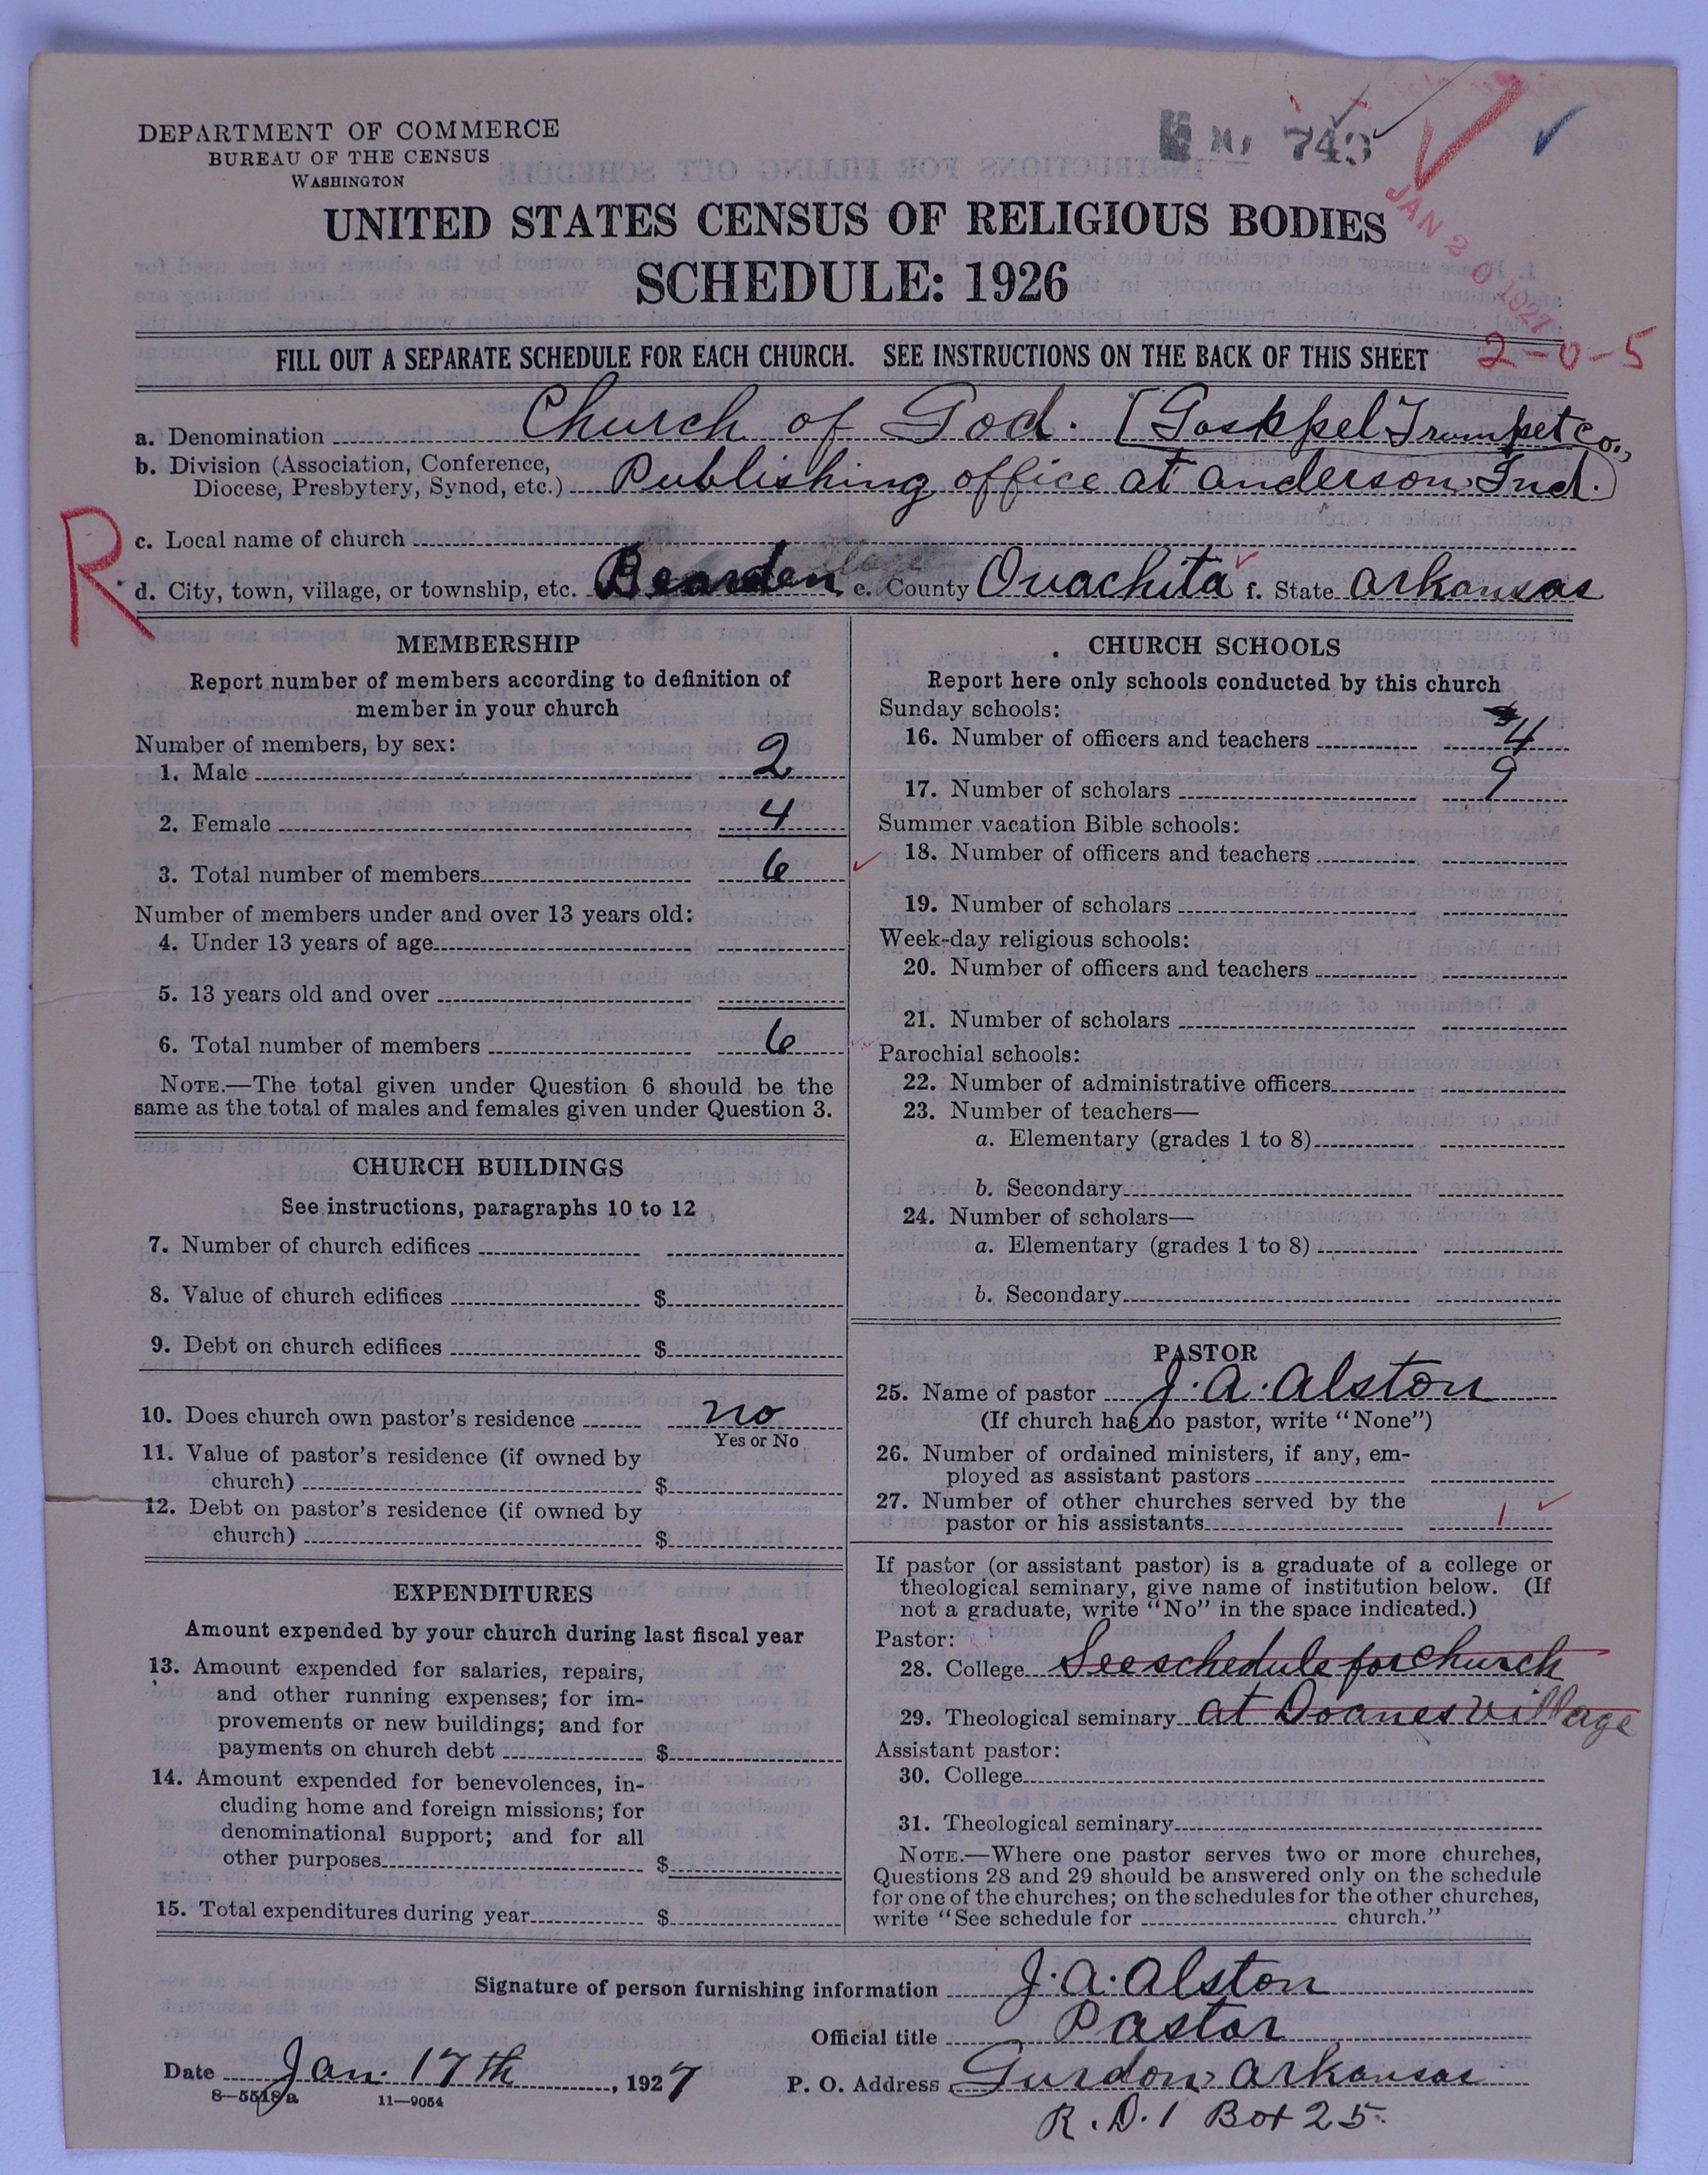 DEPARTMENT OF COMMERCE
BUREAU OF THE CENSUS
WASHINGTON
743
JAN 20 1927
UNITED STATES CENSUS OF RELIGIOUS BODIES
SCHEDULE: 1926
FILL OUT A SEPARATE SCHEDULE FOR EACH CHURCH. SEE INSTRUCTIONS ON THE BACK OF THIS SHEET
2-0-5
a. Denomination Church of God. [Goskpel Trumpet Co.,
b. Division (Association, Conference,
Diocese, Presbytery, Synod, etc.) Publishing office at anderson, Ind.)
R
c. Local name of church
d. City, town, village, or township, etc. Bearden e. County Ouachita f. State arkansas
MEMBERSHIP
Report number of members according to definition of
member in your church
Number of members, by sex:
1. Male 2
2. Female 4
3. Total number of members 6
Number of members under and over 13 years old:
4. Under 13 years of age
5. 13 years old and over
6. Total number of members 6
NOTE.—The total given under Question 6 should be the
same as the total of males and females given under Question 3.
CHURCH BUILDINGS
See instructions, paragraphs 10 to 12
7. Number of church edifices
8. Value of church edifices $
9. Debt on church edifices $
10. Does church own pastor's residence no
Yes or No
11. Value of pastor's residence (if owned by
church) $
12. Debt on pastor's residence (if owned by
church) $
EXPENDITURES
Amount expended by your church during last fiscal year
13. Amount expended for salaries, repairs,
and other running expenses; for im-
provements or new buildings; and for
payments on church debt $
14. Amount expended for benevolences, in-
cluding home and foreign missions; for
denominational support; and for all
other purposes $
15. Total expenditures during year $
CHURCH SCHOOLS
Report here only schools conducted by this church
Sunday schools:
16. Number of officers and teachers 4
17. Number of scholars 9
Summer vacation Bible schools:
18. Number of officers and teachers
19. Number of scholars
Week-day religious schools:
20. Number of officers and teachers
21. Number of scholars
Parochial schools:
22. Number of administrative officers
23. Number of teachers—
a. Elementary (grades 1 to 8)
b. Secondary
24. Number of scholars—
a. Elementary (grades 1 to 8)
b. Secondary
PASTOR
25. Name of pastor J. A. Alston
(If church has no pastor, write "None")
26. Number of ordained ministers, if any, em-
ployed as assistant pastors
27. Number of other churches served by the
pastor or his assistants 1
If pastor (or assistant pastor) is a graduate of a college or
theological seminary, give name of institution below. (If
not a graduate, write "No" in the space indicated.)
Pastor:
28. College See schedule for church
29. Theological seminary at Doanesvillage
Assistant pastor:
30. College
31. Theological seminary
NOTE.—Where one pastor serves two or more churches,
Questions 28 and 29 should be answered only on the schedule
for one of the churches; on the schedules for the other churches,
write "See schedule for church."
Signature of person furnishing information J. A. Alston
Official title Pastor
Date Jan. 17th, 1927 P. O. Address Gurdon, Arkansas
8—5518a 11—9054
R. D. 1 Box 25.